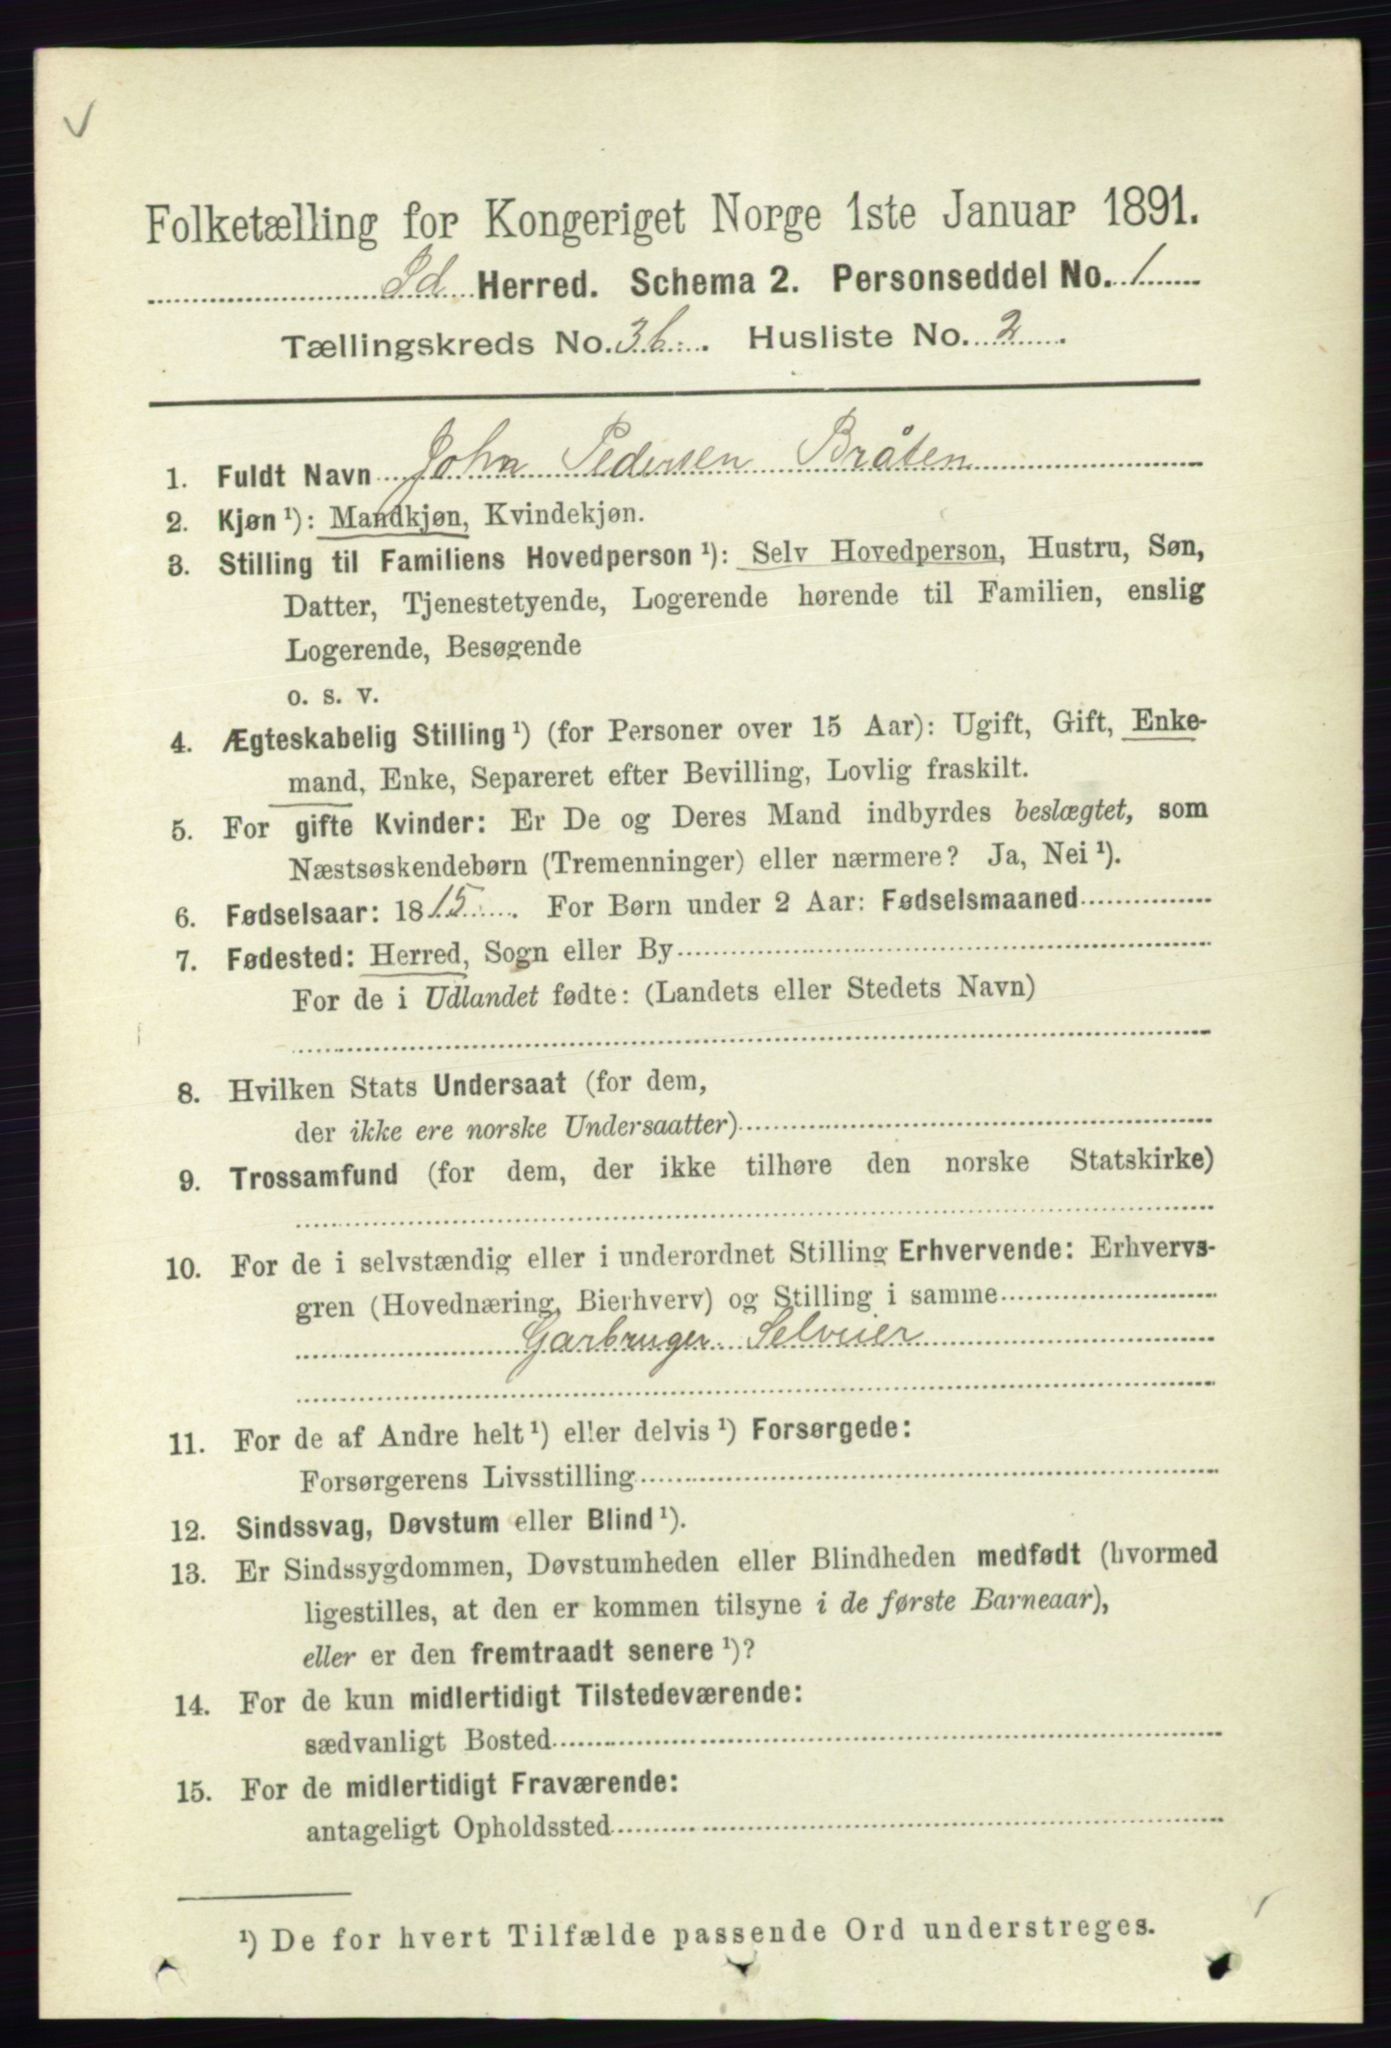 Folketælling for Kongeriget Norge 1ste Januar 1891.
Id Herred. Schema 2. Personseddel No. 1
Tællingskreds No. 3b. Husliste No. 2.
1. Fuldt Navn John Pedersen Bråten
2. Kjøn¹): Mandkjøn, Kvindekjøn.
3. Stilling til Familiens Hovedperson¹): Selv Hovedperson, Hustru, Søn,
Datter, Tjenestetyende, Logerende hørende til Familien, enslig
Logerende, Besøgende
o. s. v.
4. Ægteskabelig Stilling¹) (for Personer over 15 Aar): Ugift, Gift, Enke-
mand, Enke, Separeret efter Bevilling, Lovlig fraskilt.
5. For gifte Kvinder: Er De og Deres Mand indbyrdes beslægtet, som
Næstsøskendebørn (Tremenninger) eller nærmere? Ja, Nei¹).
6. Fødselsaar: 1815. For Børn under 2 Aar: Fødselsmaaned
7. Fødested: Herred, Sogn eller By
For de i Udlandet fødte: (Landets eller Stedets Navn)
8. Hvilken Stats Undersaat (for dem,
der ikke ere norske Undersaatter)
9. Trossamfund (for dem, der ikke tilhøre den norske Statskirke)
10. For de i selvstændig eller i underordnet Stilling Erhvervende: Erhvervs-
gren (Hovednæring, Bierhverv) og Stilling i samme
Garbruger Selveier
11. For de af Andre helt¹) eller delvis¹) Forsørgede:
Forsørgerens Livsstilling
12. Sindssvag, Døvstum eller Blind¹).
13. Er Sindssygdommen, Døvstumheden eller Blindheden medfødt (hvormed
ligestilles, at den er kommen tilsyne i de første Barneaar),
eller er den fremtraadt senere¹)?
14. For de kun midlertidigt Tilstedeværende:
sædvanligt Bosted
15. For de midlertidigt Fraværende:
antageligt Opholdssted
¹) De for hvert Tilfælde passende Ord understreges.